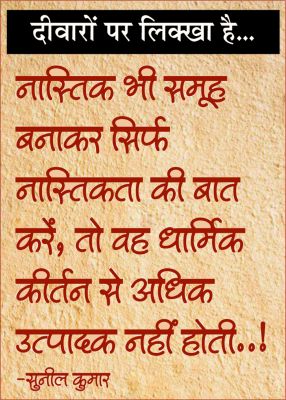 दीवारों पर लिक्खा है...
नास्तिक भी समूह
बनाकर सिर्फ
नास्तिकता की बात
करें, तो वह धार्मिक
कीर्तन से अधिक
उत्पादक नहीं होती..!
-सुनील कुमार